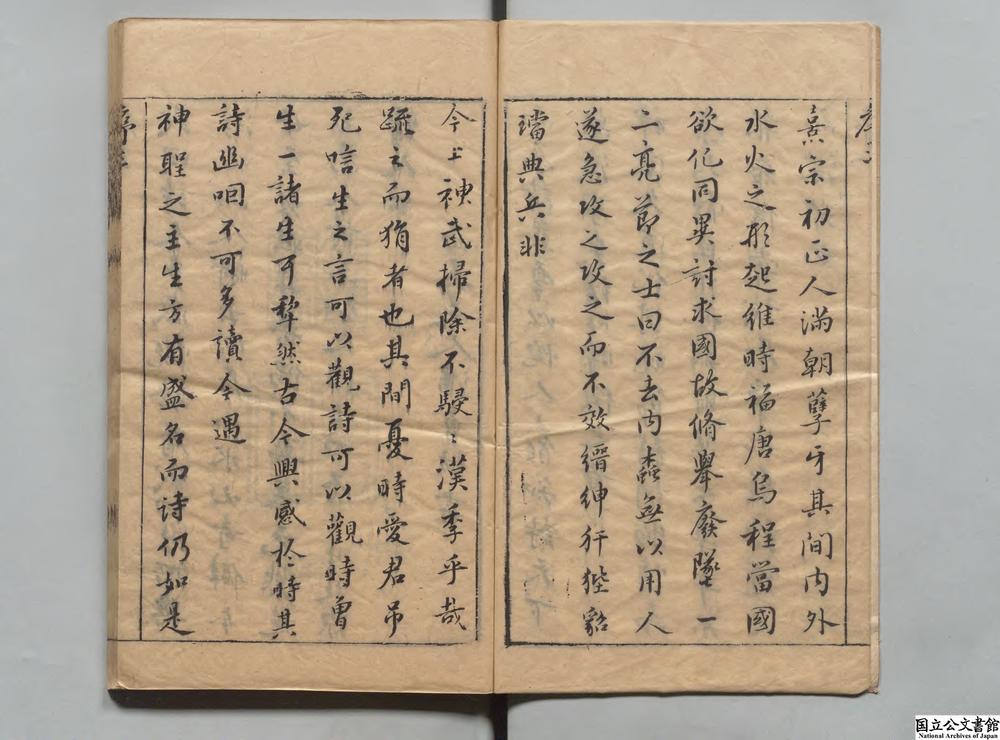 熹宗初正人滿朝孽牙其間内外
水火之形起維時福唐烏程當國
欲化同異討求國故脩舉廢墜一
二亮節之士曰不去内蠹無以用人
遂急攻之攻之而不效縉紳犴狴貂
璫典兵非
今上神武掃除不駸〻漢季乎哉
疏之而猶者也其間憂時愛君吊
死唁生之言可以觀詩可以觀時曽
生一諸生耳犂然古今興感於時其
詩幽咽不可多讀今遇
神聖之主生方有盛名而詩仍如是
国立公文書館
National Archives of Japan